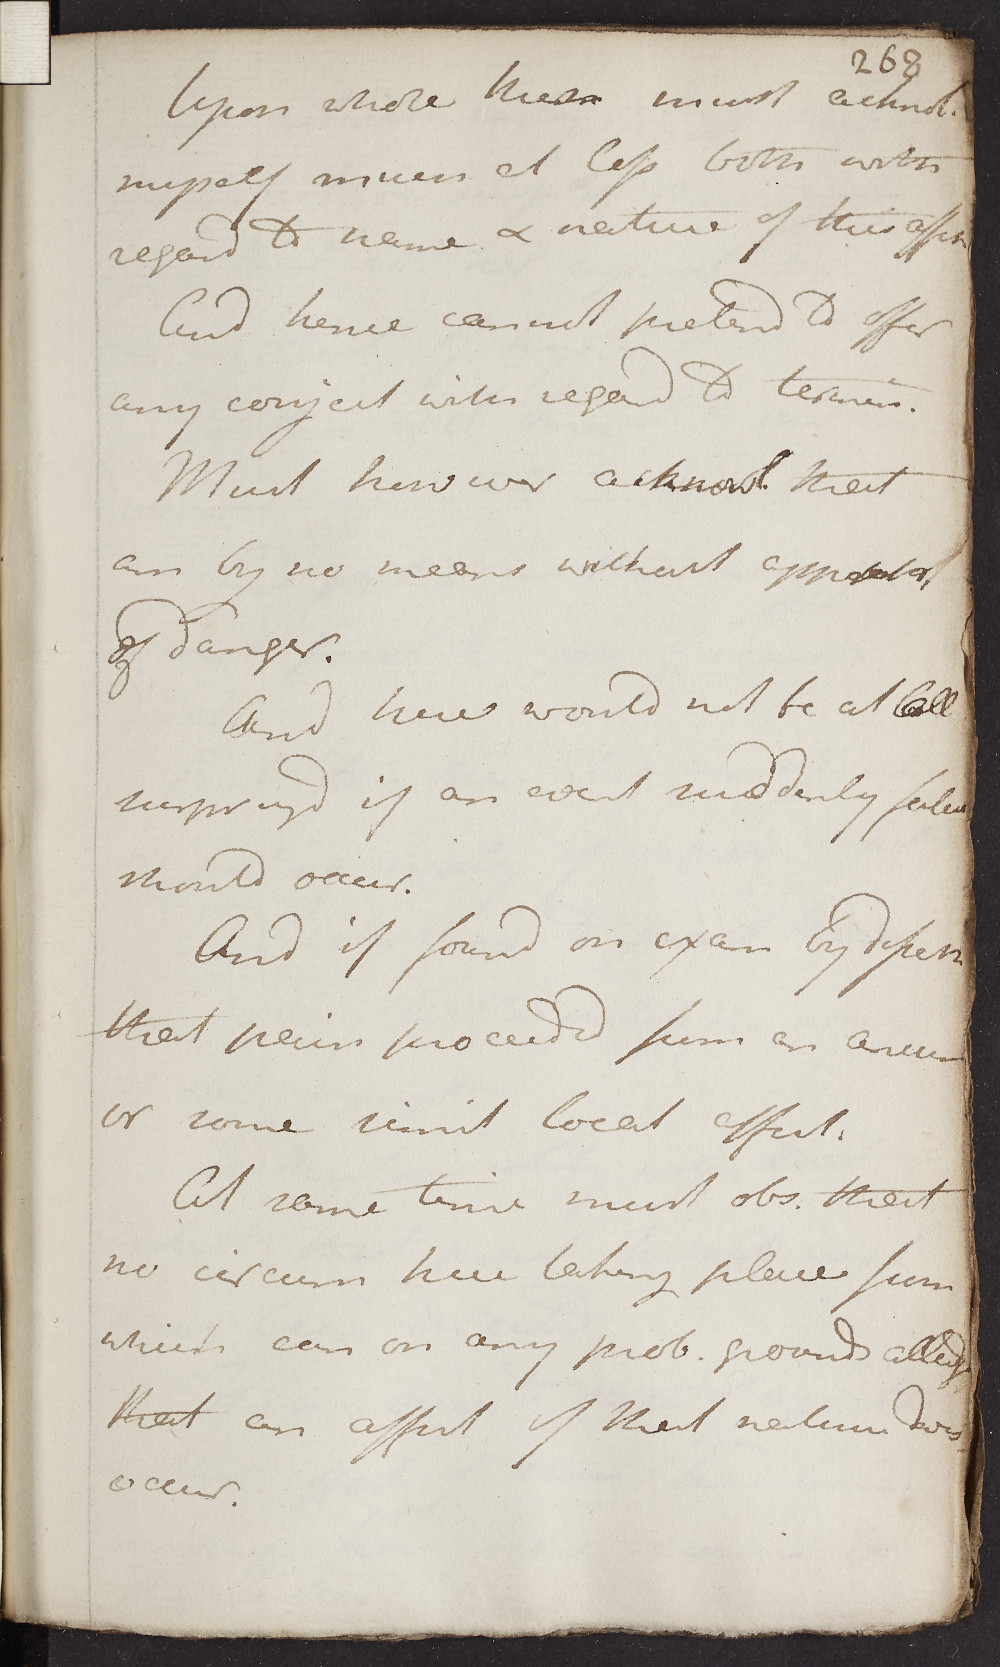 268
Upon whole then must acknol.
myself much at loss both with
regard to name & nature of this affec
And hence cannot pretend to offer
any conject with regard to termin.
Must however acknowl. that
am by no means without
of danger.
And here would not be at all
surprized if an event suddenly fatal
should occur.
And if found on exam by dissen
that pain proceeded from an aneur
or some simil local affect.
At same time must obs. that
no circum here taking place from
which can on any prob. grounds alledge
that an affect of that nature does
occur.